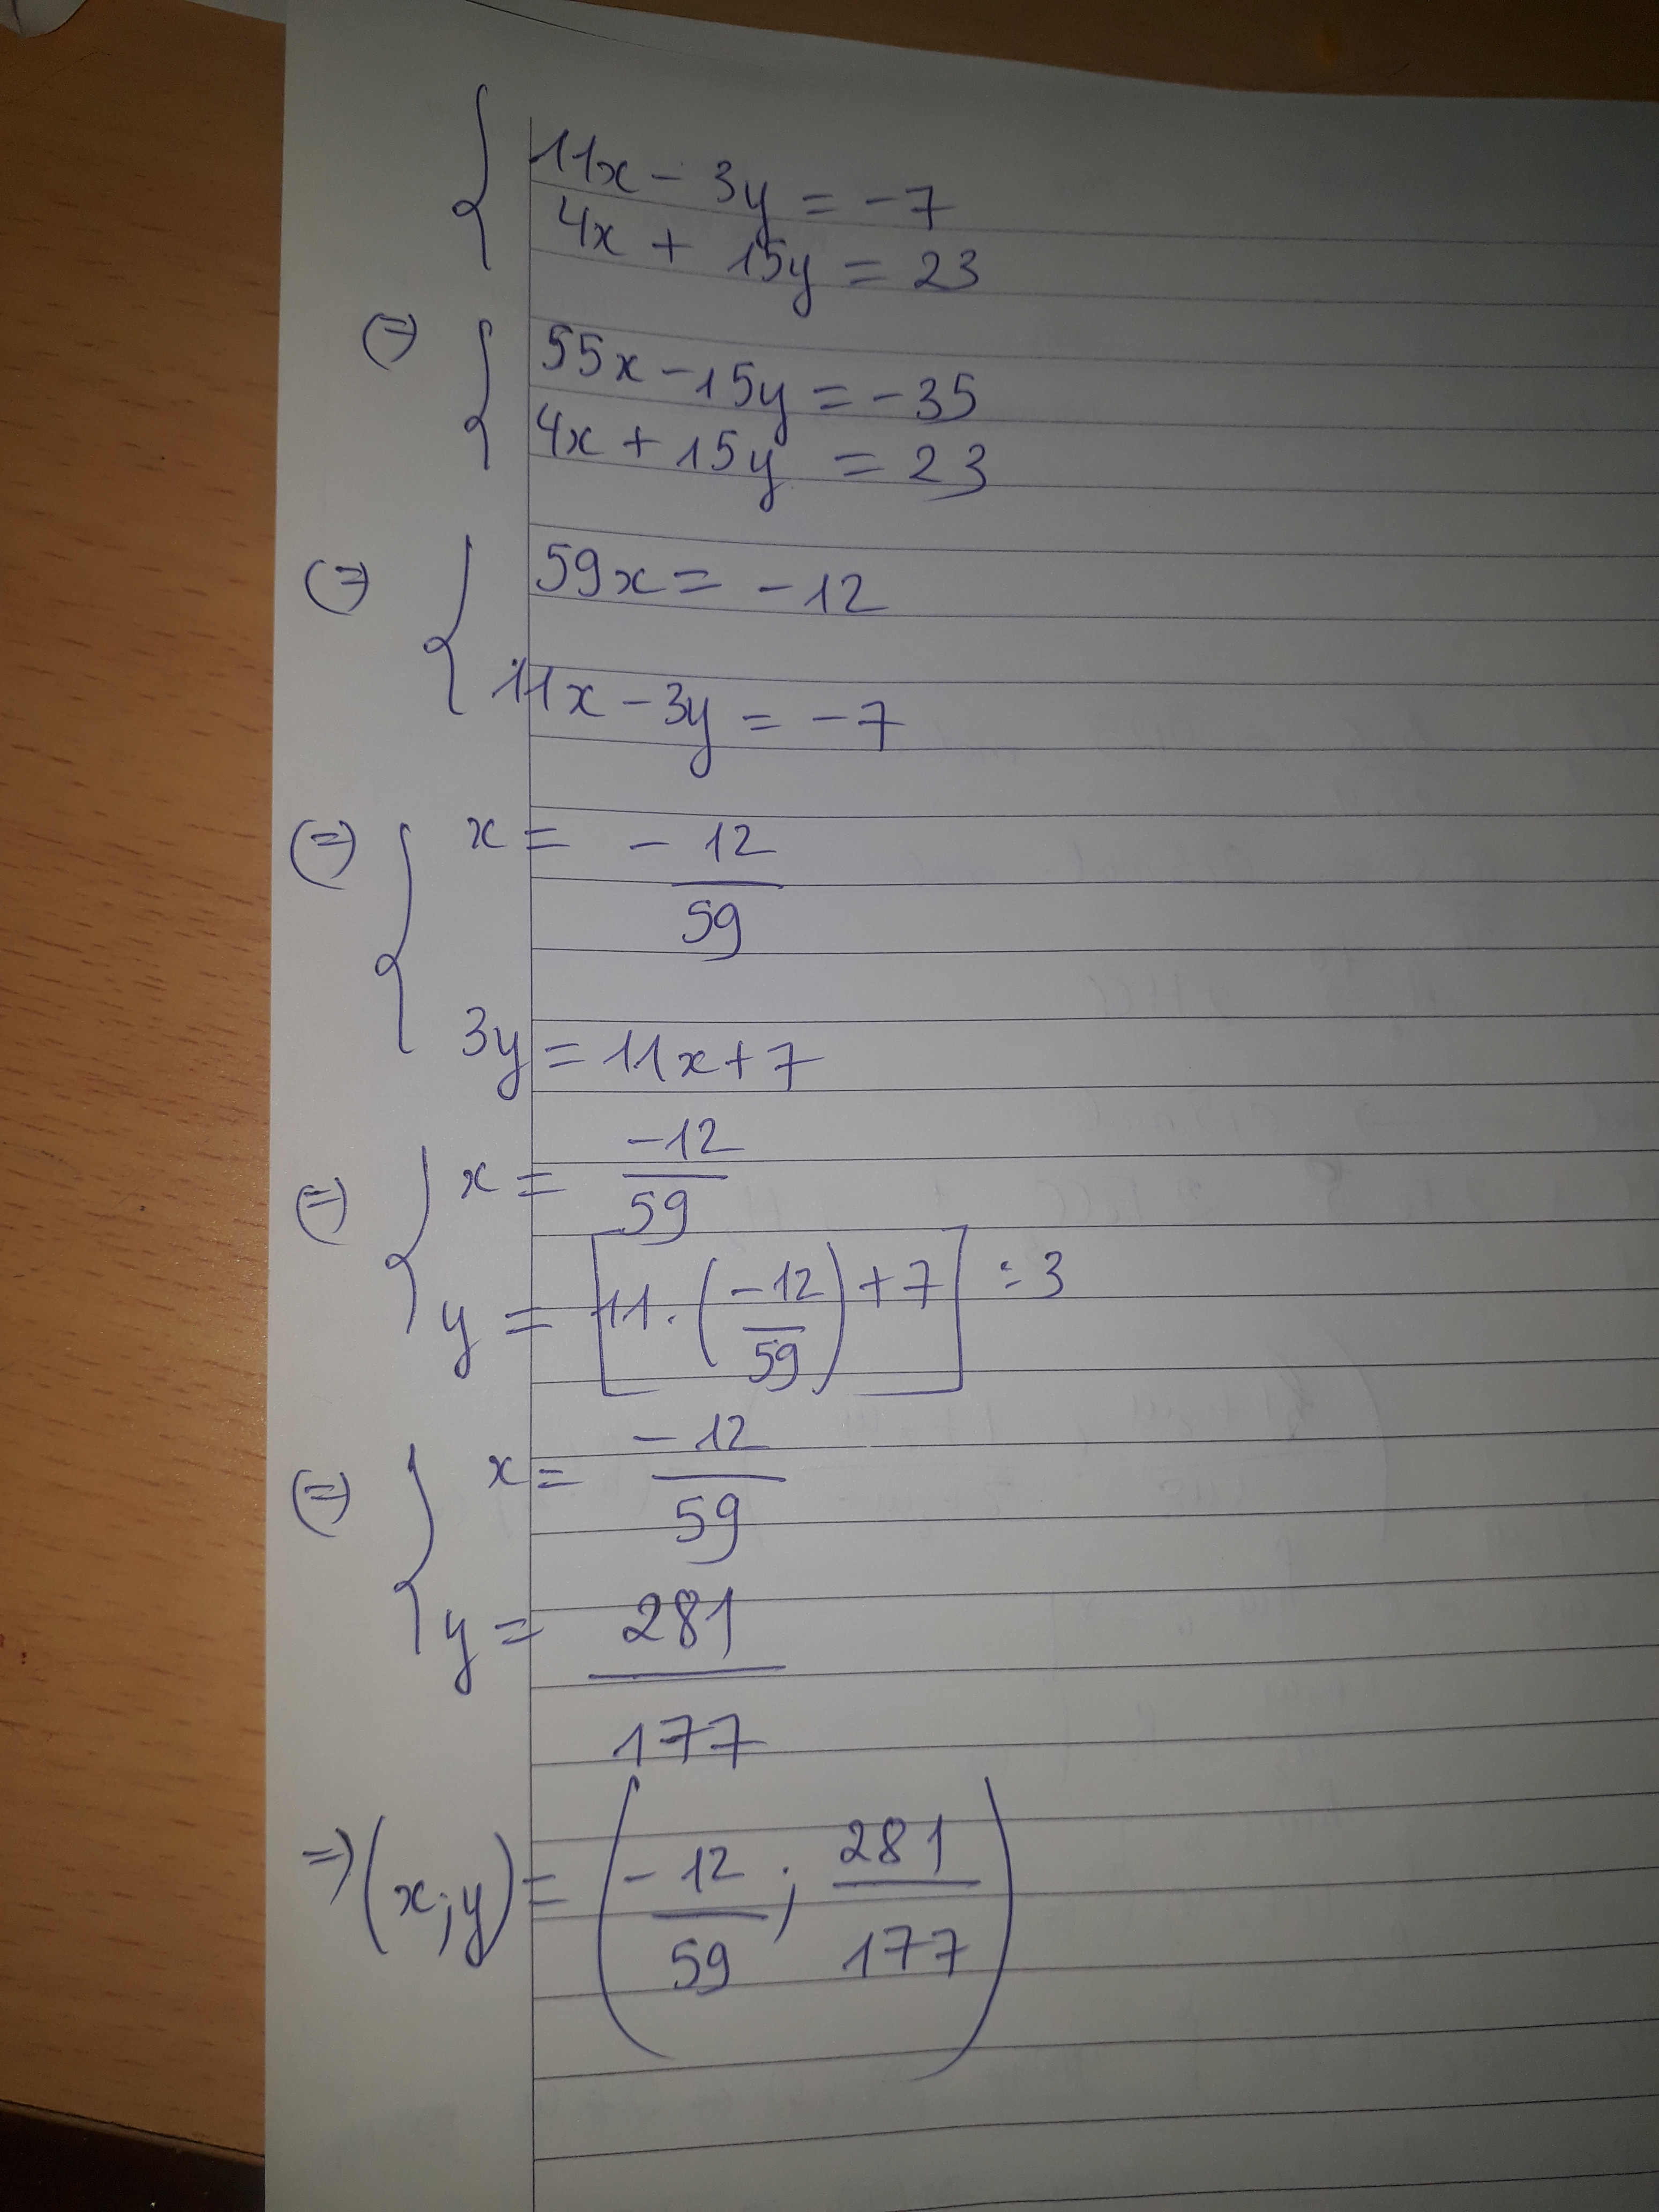 { 11x - 3y = -7
4x + 15y = 23
(=) { 55x - 15y = -35
4x + 15y = 23
(=) { 59x = -12
11x - 3y = -7
(=) { x = - 12/59
3y = 11x + 7
(=) { x = -12/59
y = [11. (-12/59) + 7] : 3
(=) { x = -12/59
y = 281/177
=) (x;y) = (-12/59 ; 281/177)